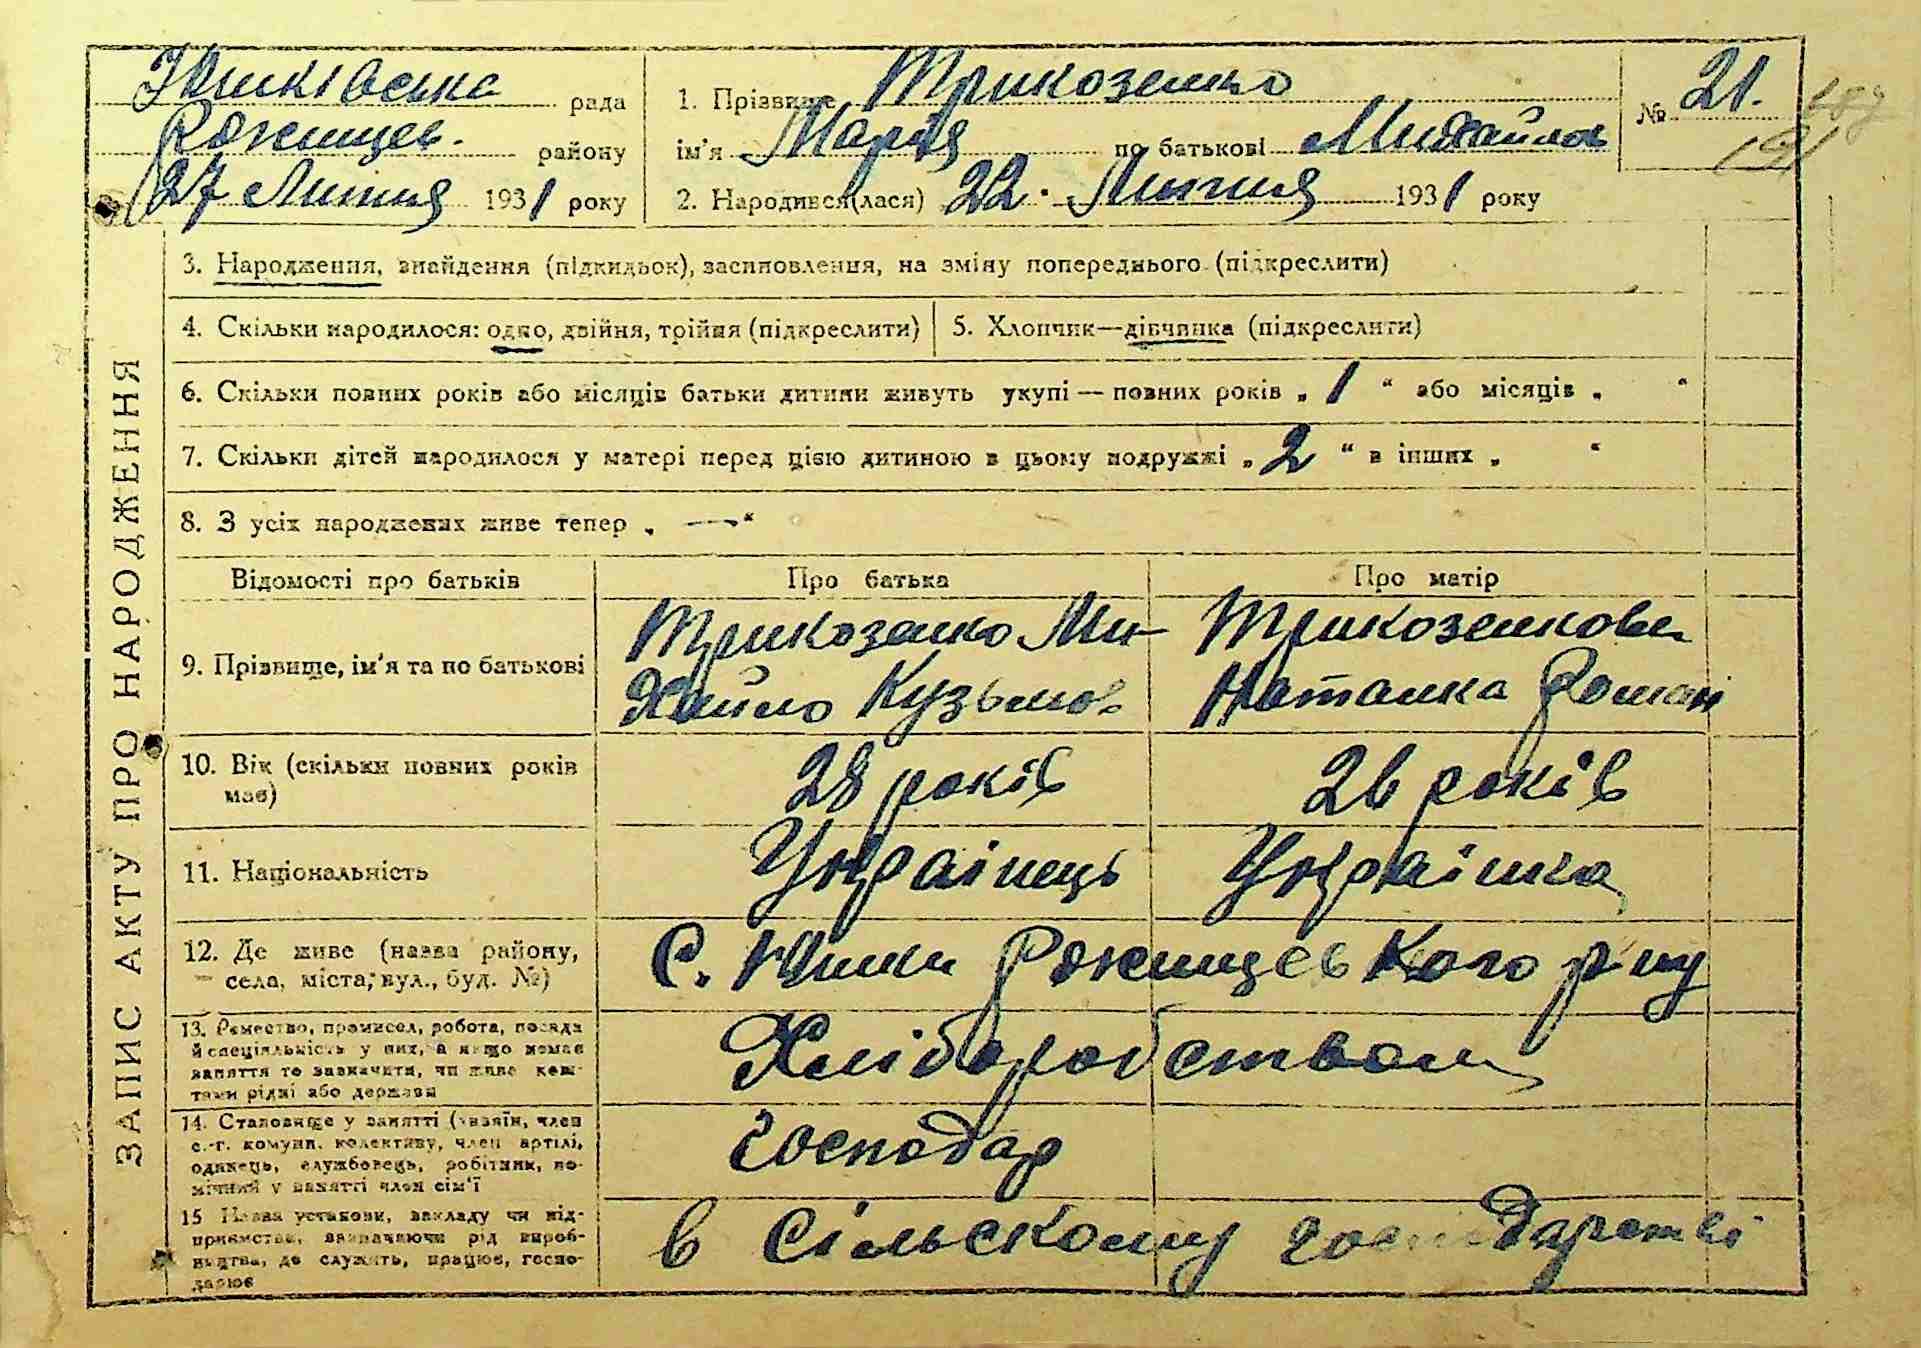 Юшківська рада
Рокищев. району
27 Липня 1931 року
1. Прізвище Трикозенко
ім'я Марія по батькові Михайлов
2. Народився(лася) 22 Липня 1931 року
№ 21.
191
ЗАПИС АКТУ ПРО НАРОДЖЕННЯ
3. Народження, знайдення (підкидьок), засиновлення, на зміну попереднього (підкреслити)
4. Скільки народилося: одно, двійня, трійня (підкреслити)
5. Хлопчик—дівчинка (підкреслити)
6. Скільки повних років або місяців батьки дитини живуть укупі — повних років „ 1 “ або місяців „ “
7. Скільки дітей народилося у матері перед цією дитиною в цьому подружжі „ 2 “ в інших „ “
8. З усіх народжених живе тепер „ — “
Відомості про батьків
Про батька
Про матір
9. Прізвище, ім'я та по батькові
Трикозенко Ми-
хайло Кузьмов.
Трикозенкова
Наталка Роман
10. Вік (скільки повних років
має)
28 років
26 років
11. Національність
Українець
Українка
12. Де живе (назва району,
села, міста, вул., буд. №)
С. Юшки Рокищевського р-ну
13. Ремество, промисел, робота, посада
й спеціяльність у них, а якщо немає
заняття то зазначити, чи живе кош-
тами рідні або держави
Хліборобством
14. Становище у занятті (хазяїн, член
с.-г. комуни, колективу, член артілі,
одинець, службовець, робітник, по-
мічний у занятті член сім'ї
Господар
15 Назва установи, закладу чи під-
приємства, зазначаючи рід вироб-
ництва, де служить, працює, госпо-
дарює
в сільському господарстві